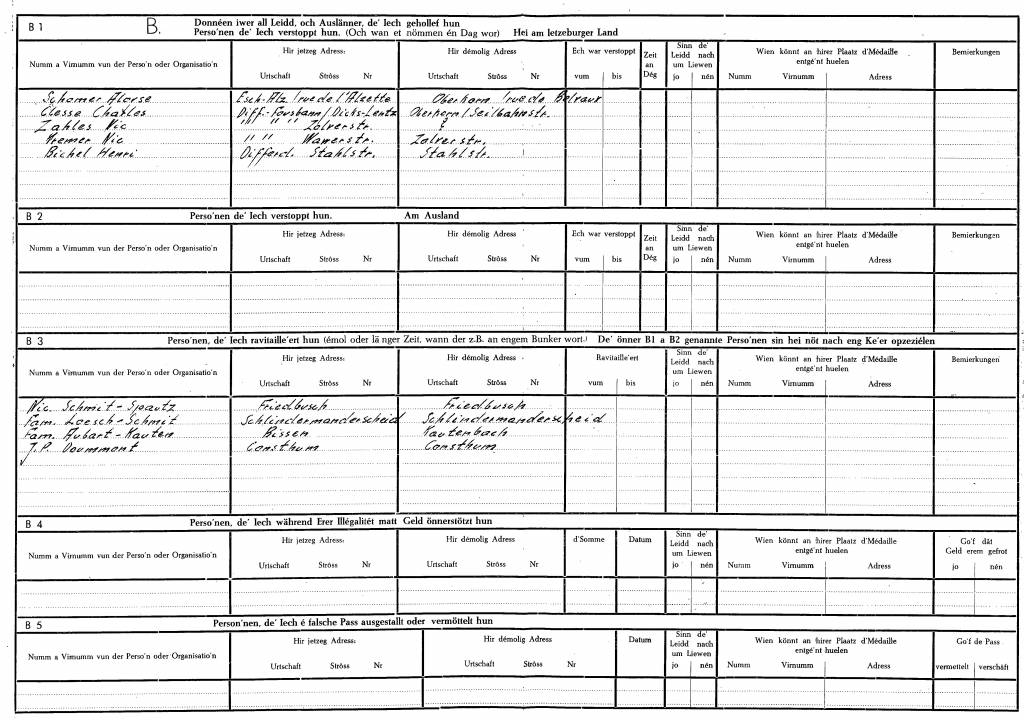 B 1 B. Donnéen iwer all Leidd, och Auslänner, de' Iech gehollef hun
Perso'nen de' Iech verstoppt hun. (Och wan et nömmen én Dag wor) Hei am letzeburger Land
Numm a Virnumm vun der Perso'n oder Organisatio'n
Hir jetzeg Adress:
Urtschaft Ströss Nr
Hir démolig Adress:
Urtschaft Ströss Nr
Ech war verstoppt
vum bis
Zeit
an
Dég
Sinn de'
Leidd nach
um Liewen
jo nén
Wien könnt an hirer Plaatz d'Médaille
entgé'nt huelen
Numm Virnumm Adress
Bemierkungen
Schomer Aloyse Esch-Alz. rue de l'Alzette Oberkorn rue de Belvaux
Clesse Charles Diff.-Fousbann / Dicks-Lentz Oberkorn / Seilbahnstr.
Zahles Nic " " " Zolverstr. ?
Kremer Nic " " Wanerstr. Zolverstr.
Bichel Henri Differd. Stahlstr. Stahlstr.
B 2 Perso'nen de' Iech verstoppt hun. Am Ausland
Numm a Virnumm vun der Perso'n oder Organisatio'n
Hir jetzeg Adress:
Urtschaft Ströss Nr
Hir démolig Adress
Urtschaft Ströss Nr
Ech war verstoppt
vum bis
Zeit
an
Dég
Sinn de'
Leidd nach
um Liewen
jo nén
Wien könnt an hirer Plaatz d'Médaille
entgé'nt huelen
Numm Virnumm Adress
Bemierkungen
B 3 Perso'nen, de' Iech ravitaille'ert hun (émol oder länger Zeit, wann der z.B. an engem Bunker wort.) De' önner B1 a B2 genannte Perso'nen sin hei nöt nach eng Ke'er opzeziélen
Numm a Virnumm vun der Perso'n oder Organisatio'n
Hir jetzeg Adress:
Urtschaft Ströss Nr
Hir démolig Adress
Urtschaft Ströss Nr
Ravitaille'ert
vum bis
Sinn de'
Leidd nach
um Liewen
jo nén
Wien könnt an hirer Plaatz d'Médaille
entgé'nt huelen
Numm Virnumm Adress
Bemierkungen
Nic. Schmit-Spautz Friedbusch Friedbusch
Fam. Loesch-Schmit Schlindermanderscheid Schlindermanderscheid
Fam. Aubart-Kauten Bissen Kautenbach
J.P. Doummont Consthum Consthum
B 4 Perso'nen, de' Iech während Erer Illégalitét matt Geld önnerstötzt hun
Numm a Virnumm vun der Perso'n oder Organisatio'n
Hir jetzeg Adress:
Urtschaft Ströss Nr
Hir démolig Adress
Urtschaft Ströss Nr
d'Somme
Datum
Sinn de'
Leidd nach
um Liewen
jo nén
Wien könnt an hirer Plaatz d'Médaille
entgé'nt huelen
Numm Virnumm Adress
Go'f dât
Geld erem gefrot
jo nén
B 5 Person'nen, de' Iech é falsche Pass ausgestallt oder vermöttelt hun
Numm a Virnumm vun der Perso'n oder Organisatio'n
Hir jetzeg Adress:
Urtschaft Ströss Nr
Hir démolig Adress
Urtschaft Ströss Nr
Datum
Sinn de'
Leidd nach
um Liewen
jo nén
Wien könnt an hirer Plaatz d'Médaille
entgé'nt huelen
Numm Virnumm Adress
Go'f de Pass
vermettelt verschäft